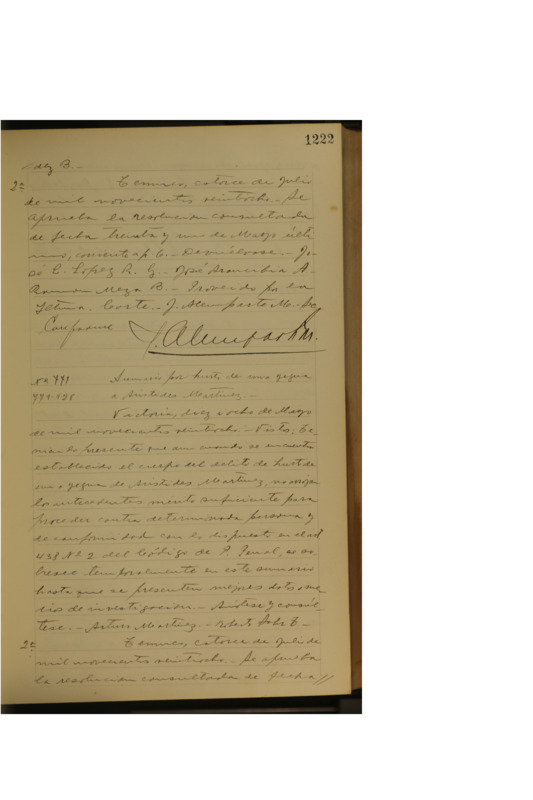 1222
dez B.-
2ª Temuco, catorce de Julio
de mil novecientos veintiocho.- Se
aprueba la resolucion consultada
de fecha treinta y uno de Mayo últi
mo, corriente a f. 6.- Devuélvase.- Jo-
sé L. Lopez R. G.- José Arancibia A.-
Ramon Meza B.- Proveido por la
Iltma. Corte.- J. Alemparte M.- Sec
Conforme
J. Alemparte M.
Nº 771 Sumario por hurto de una yegua
771-928 a Arístides Martinez.-
Victoria, diez y ocho de Mayo
de mil novecientos veintiocho.- Vistos: Te-
niendo presente que aun cuando se encuentra
establecido el cuerpo del delito de hurto de
una yegua de Arístides Martinez, no arrojan
los antecedentes mérito suficiente para
proceder contra determinada persona y
de conformidad con lo dispuesto en el art
438 Nº 2 del Código de P. Penal, se so-
bresee temporalmente en este sumario
hasta que se presenten mejores datos o me-
dios de investigacion.- Anótese y consúl-
tese.- Arturo Martinez.-
2ª Temuco, catorce de Julio de
mil novecientos veintiocho.- Se aprueba
la resolucion consultada de fecha//